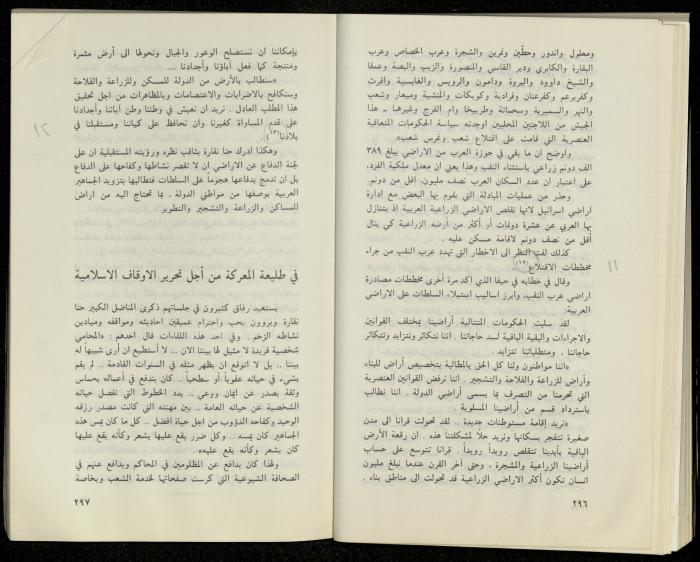 ومعلول واندور وحطّين ونمرين والشجرة وعرب الخصاص وعرب
البقارة والكابري ودير القاسي والمنصورة والزيب والبصة وعمقا
والشيخ داوود والبروة ودامون والرويس والغابسية واقرث
وكفربرعم وكفرعنان وفرادية وكويكات والمنشية وميعار وشعب
والنهر والسميرية وسحماتة وطربيخا وام الفرج وغيرها ـ هذا
الجيش من اللاجئين المحليين اوجدته سياسة الحكومات المتعاقبة
العنصرية التي قامت على إقتلاع شعب وغرس شعب».
واوضح ان ما بقي في حوزة العرب من الاراضي يبلغ ٣٨٩
الف دونم زراعي باستثناء النقب وهذا يعني ان معدل ملكية الفرد،
على اعتبار ان عدد السكان العرب نصف مليون، اقل من دونم.
وحذر من عمليات المبادلة التي يقوم بها البعض مع ادارة
اراضي اسرائيل لانها تقلص الاراضي الزراعية العربية اذ يتنازل
بها العربي عن عشرة دونمات أو أكثر من أرضه الزراعية كي ينال
أقل من نصف دونم لاقامة مسكن عليه .
كذلك لفت النظر الى الاخطار التي تهدد عرب النقب من جراء
مخططات الاقتلاع(١٢).
١١
وقال في خطابه في حيفا الذي اكد مرة أخرى مخططات مصادرة
اراضي عرب النقب، وابرز اساليب استيلاء السلطات على الاراضي
العربية:
لقد سلبت الحكومات المتتالية أراضينا بمختلف القوانين
والاجراءات والبقية الباقية لسد حاجاتنا . اننا نتكاثر ونتزايد وتتكاثر
حاجاتنا . ومتطلباتنا تتزايد .
«اننا مواطنون ولنا كل الحق بالمطالبة بتخصيص أراض للبناء
وأراض للزراعة والفلاحة والتشجير . اننا نرفض القوانين العنصرية
التي تحرمنا من التصرف بما يسمى أراضي الدولة . اننا نطالب
باسترداد قسم من أراضينا المسلوبة .
«نريد إقامة مستوطنات جديدة .. لقد تحولت قرانا الى مدن
صغيرة تنفجر بسكانها ونريد حلاً لمشكلتنا هذه . ان رقعة الأرض
الباقية بأيدينا تتقلص رويداً رويداً. قرانا تتوسع على حساب
أراضينا الزراعية والمشجرة ، وحتى آخر القرن عندما نبلغ مليون
انسان تكون أكثر الاراضي الزراعية قد تحولت الى مناطق بناء .
٢٩٦
بإمكاننا ان نستصلح الوعور والجبال ونحولها الى أرض مثمرة
ومنتجة كما فعل آباؤنا وأجدادنا ....
«سنطالب بالأرض من الدولة للمسكن وللزراعة والفلاحة
وسنكافح بالاضرابات والاعتصامات وبالمظاهرات من اجل تحقيق
هذا المطلب العادل . نريد ان نعيش في وطننا وطن آبائنا وأجدادنا
على قدم المساواة كغيرنا وان نحافظ على كياننا ومستقبلنا في
بلادنا(١٣).
١٢
وهكذا ادرك حنا نقارة بثاقب نظره ورؤيته المستقبلية ان على
لجنة الدفاع عن الاراضي ان لا تقصر نشاطها وكفاحها على الدفاع
بل ان تدمج بدفاعها هجوماً على السلطات فتطالبها بتزويد الجماهير
العربية بوصفها من مواطني الدولة . بما تحتاج اليه من اراض
للمساكن والزراعة والتشجير والتطوير .
في طليعة المعركة من أجل تحرير الاوقاف الاسلامية
يستعيد رفاق كثيرون في جلساتهم ذكرى المناضل الكبير حنا
نقارة ويروون بحب واحترام عميقين احاديثه ومواقفه وميادين
نشاطه الزخم . وفي احد هذه اللقاءات قال احدهم : «المحامي
شخصية فريدة لا مثيل لها بيننا الان ... لا أستطيع ان أرى شبيها له
بيننا .. بل لا اتوقع ان يظهر مثله في السنوات القادمة .. لم يقم
بشيء في حياته عفوياً أو سطحياً .. كان يندفع في أعماله بحماس
وثقة يصدر عن ايمان ووعي .. بدد الخطوط التي تفصل حياته
الشخصية عن حياته العامة .. بين مهنته التي كانت مصدر رزقه
الوحيد وكفاحه الدؤوب من اجل حياة افضل .. كل ما كان يمس هذه
الجماهير كان يمسه .. وكل ضرر يقع عليها يشعر وكأنه يقع عليها
كان يشعر وكأنه يقع عليه» .
ولهذا كان يدافع عن المظلومين في المحاكم ويدافع عنهم في
الصحافة الشيوعية التي كرست صفحاتها لخدمة الشعب وبخاصة
٢٩٧